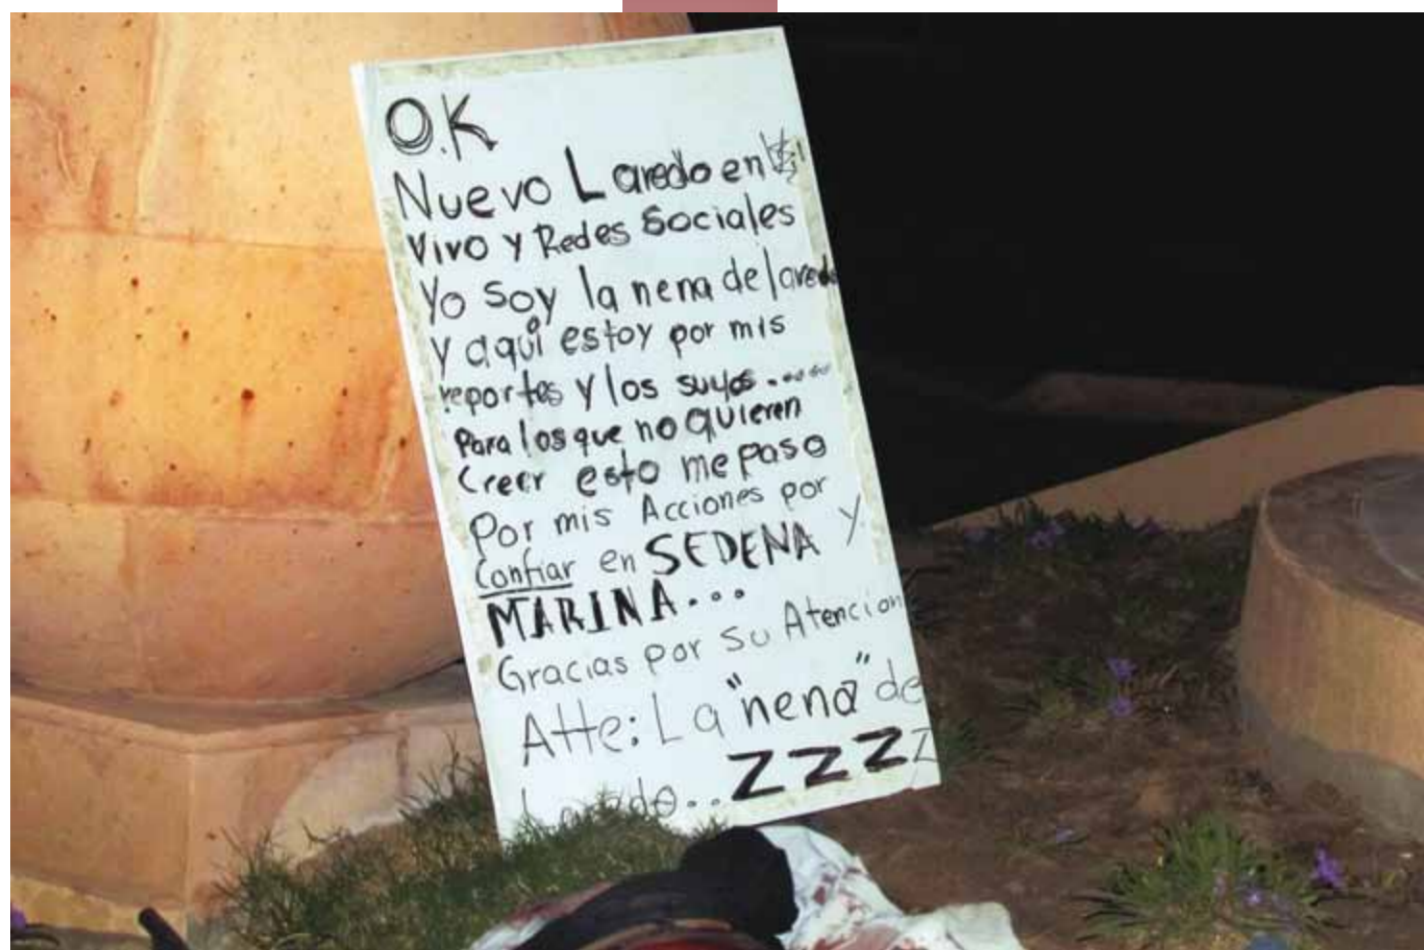 O.K
Nuevo Laredo en
Vivo y Redes Sociales
Yo Soy la nena de laredo
y aquí estoy por mis
reportes y los suyos......
Para los que no quieren
Creer esto me paso
Por mis Acciones por
Confiar en SEDENA y
MARINA...
Gracias por su Atencion
Atte: La "nena" de
Laredo.. ZZZZ